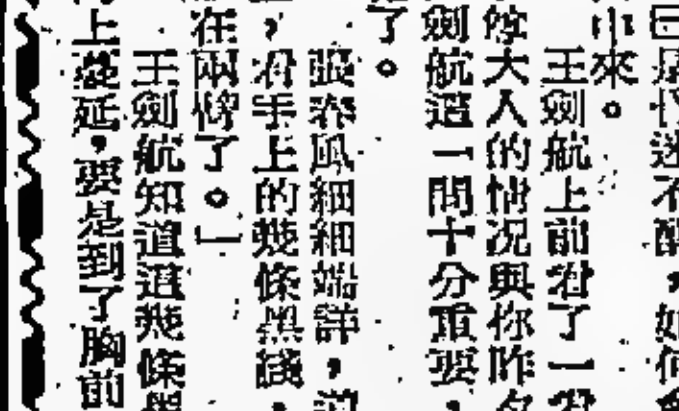 是仍迷不醒，如何
中來。
王劍航上前看了一
大人的情况與你昨夕
劍航這一問十分重要，
了。
張春風細細端詳，
看手上的幾條黑綫，
在兩傍了。一
王劍航知道這幾條
上蔓延，要是到了胸前